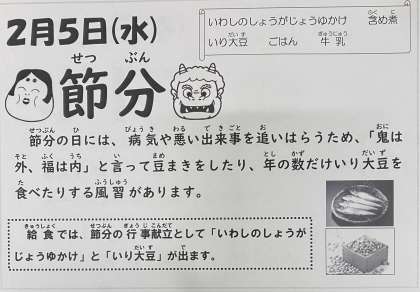 2月5日(水)
いわしのしょうがじょうゆかけ 含め煮
いり大豆 ごはん 牛乳
節分
節分の日には、病気や悪い出来事を追いはらうため、「鬼は
外、福は内」と言って豆まきをしたり、年の数だけいり大豆を
食べたりする風習があります。
給食では、節分の行事献立として「いわしのしょうが
じょうゆかけ」と「いり大豆」が出ます。